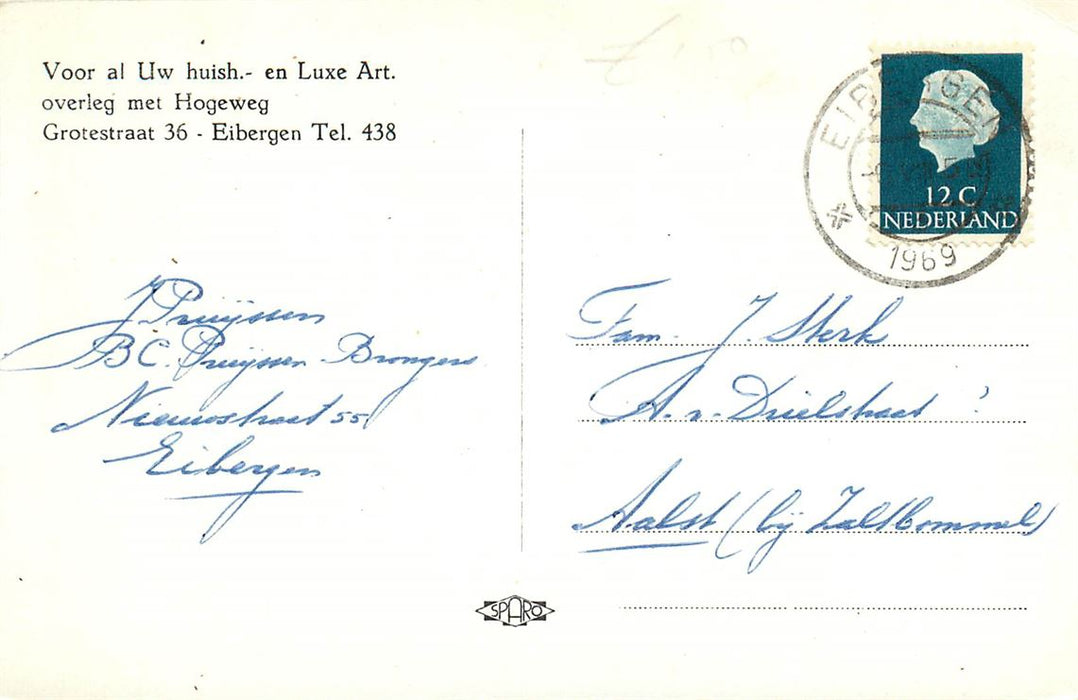 Voor al Uw huish.- en Luxe Art.
overleg met Hogeweg
Grotestraat 36 - Eibergen Tel. 438
EIBERGEN
1969
12 C
NEDERLAND
J. Pruijssen
B C. Pruijssen-Brongers
Nieuwstraat 55
Eibergen
Fam. J. Sterk
A. v. Drielstraat ?
Aalst (bij Zaltbommel)
SPARO